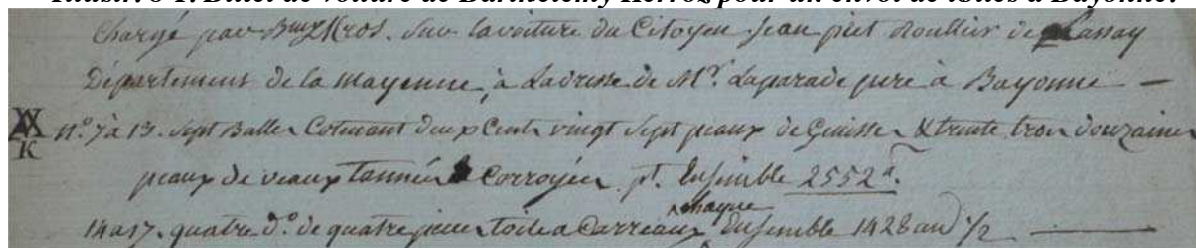 Illustr. 8-1. Billet de voiture de Barthélemy Kerros pour un envoi de toiles à Bayonne.
Chargé par Bmy Kros. Sur la voiture du Citoyen jean piet Roullier de Lassay
Département de la mayenne, à Ladresse de Mr. Laparade pere à Bayonne —
XX K n.° 7 à 13. Sept Balles Cotenant deux Cents vingt Sept peaux de Genisses & trente trois douzaines
peaux de veaux tannées & Corroyées pt. Ensemble 2552 lt.
14 a 17. quatre d.° de quatre pieces toile a Carreaux chaque Ensemble 1428 au) 1/2 —